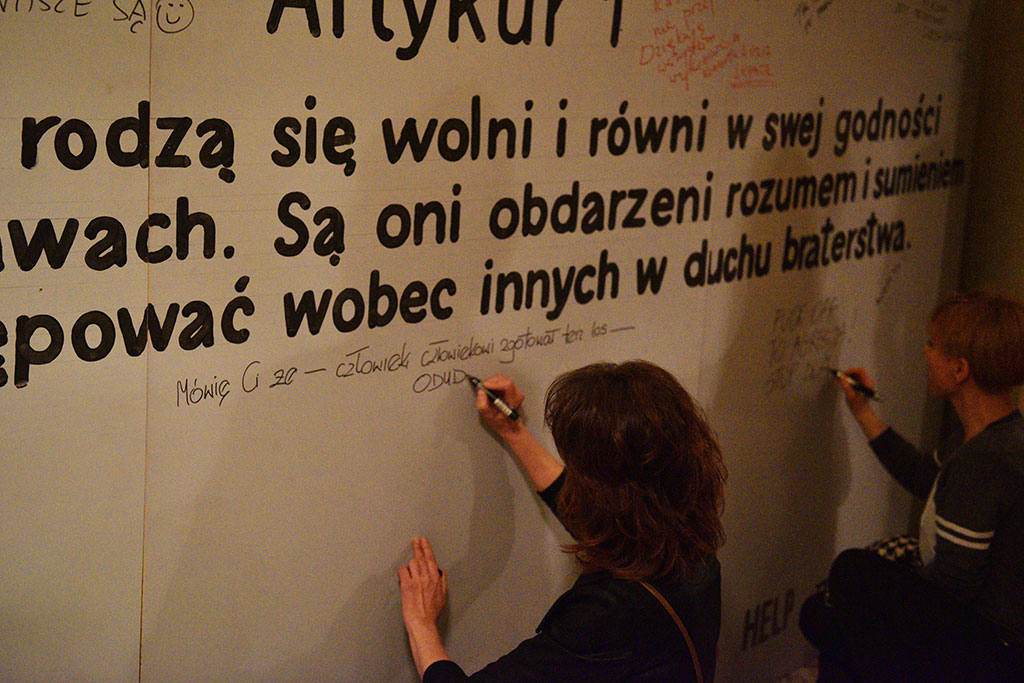 SĄ
Artykuł 1
rodzą się wolni i równi w swej godności
wach. Są oni obdarzeni rozumem i sumieniem
ępować wobec innych w duchu braterstwa.
Mówię Ci że — człowiek człowiekowi zgotował ten los —
ODUD
HELP